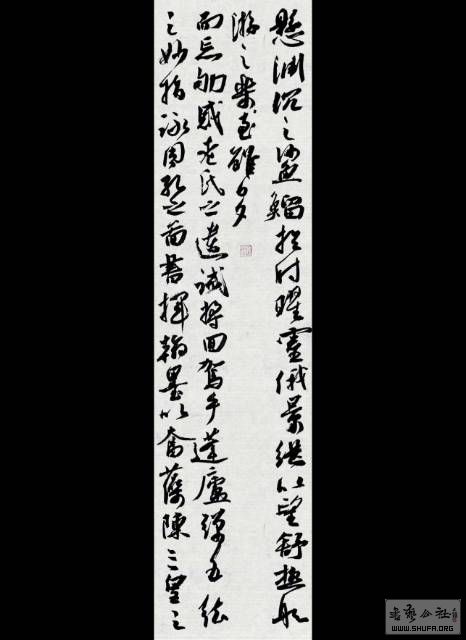 懸淵沉之鯊鰡於时曜靈俄景継以望舒极般
游之樂至雖日夕
而忘劬感老氏之遺誡将回駕乎蓬廬弹五弦
之妙指詠周孔之圖書揮翰墨以奮藻陳三皇之
書藝公社
WWW.SHUFA.ORG